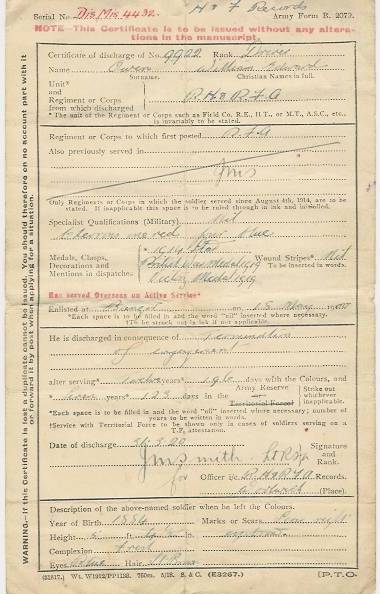 H & F Records
Serial No. Dis Mis 4432.
Army Form B. 2079.
NOTE—This Certificate is to be issued without any altera-
tions in the manuscript.
Certificate of discharge of No. 9922 Rank Driver
Name Owen William Edward
Surname. Christian Names in full.
Unit*
and
Regiment or Corps
from which discharged
R.H & R.F.A
* The unit of the Regiment or Corps such as Field Co. R.E., H.T., or M.T., A.S.C., etc.,
is invariably to be stated.
Regiment or Corps to which first posted R.F.A
Also previously served in
Jms
Only Regiments or Corps in which the soldier served since August 4th, 1914, are to be
stated. If inapplicable this space is to be ruled through in ink and initialled.
Specialist Qualifications (Military) Nil
Medals, Clasps,
Decorations and
Mentions in dispatches
1914 Star
British War Medal 1919
Victory Medal 1919
Wound Stripes* Nil
To be inserted in words.
Has served Overseas on Active Service†
Enlisted at on 15
*Each space is to be filled in and the word "nil" inserted where necessary.
†To be struck out in ink if not applicable.
He is discharged in consequence of Termination
of Engagement
after serving* Twelve years* 196 days with the Colours, and
* years* 123 days in the
Army Reserve
Territorial Force†
Strike out
whichever
inapplicable.
*Each space is to be filled in and the word "nil" inserted where necessary; number of
years to be written in words.
†Service with Territorial Force to be shown only in cases of soldiers serving on a
T.F. attestation.
Date of discharge 31.3.20
Signature
and
Rank.
JM Smith
for Officer i/c R.H & R.F.A Records.
Woolwich (Place).
Description of the above-named soldier when he left the Colours.
Year of Birth Marks or Scars
Height 5 ft. in.
Complexion Fresh
Eyes Blue Hair
(31817.) Wt. W1992/PP1128. 750m. 5/18. B. & C. (E3267.) [P.T.O.
WARNING.—If this Certificate is lost a duplicate cannot be issued. You should therefore on no account part with it
or forward it by post when applying for a situation.